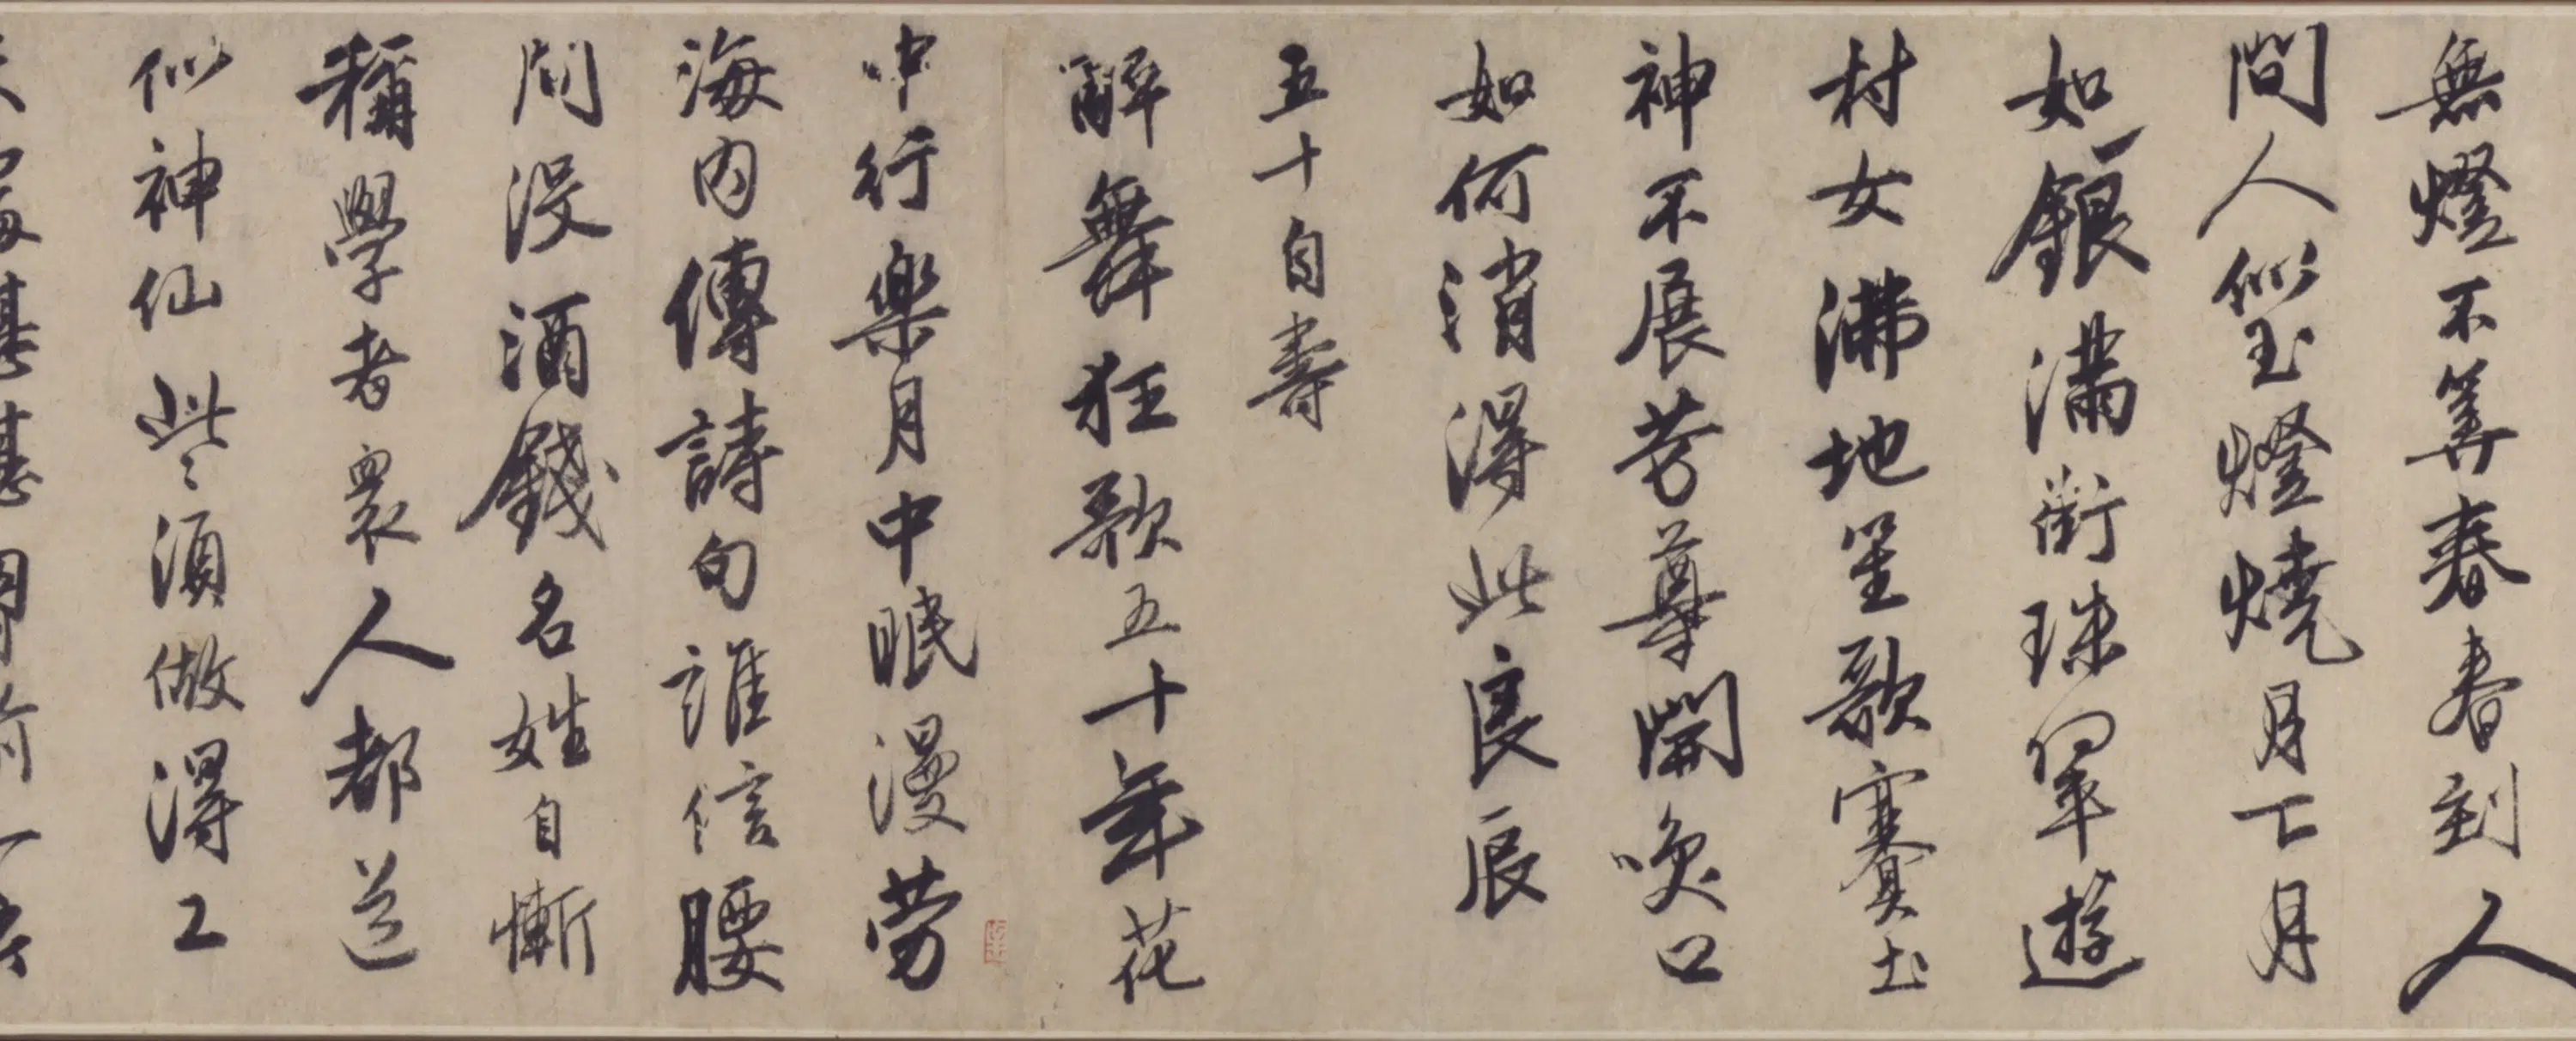 無燈不算春春到人
間人似玉燈燒月下月
如銀滿街珠翠遊
村女沸地笙歌賽社
神不展芳尊開笑口
如何消得此良辰
五十自壽
醉舞狂歌五十年花
中行樂月中眠漫勞
海内傳詩句誰信腰
間沒酒錢名姓自慚
稱學者眾人都道
似神仙些〻須做得工